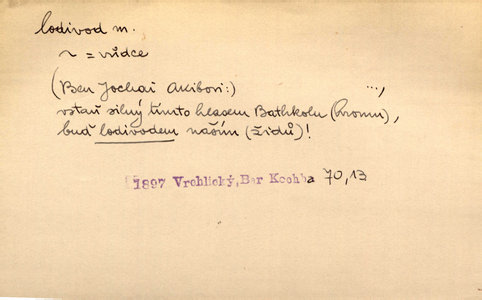 lodivod m.
~ = vůdce
(Ben Jochai Akibovi:) ...,
vstaň silný tímto hlasem Bathkolu (hromu),
buď lodivodem našim (Židů)!
1897 Vrchlický, Bar Kochba 70,13